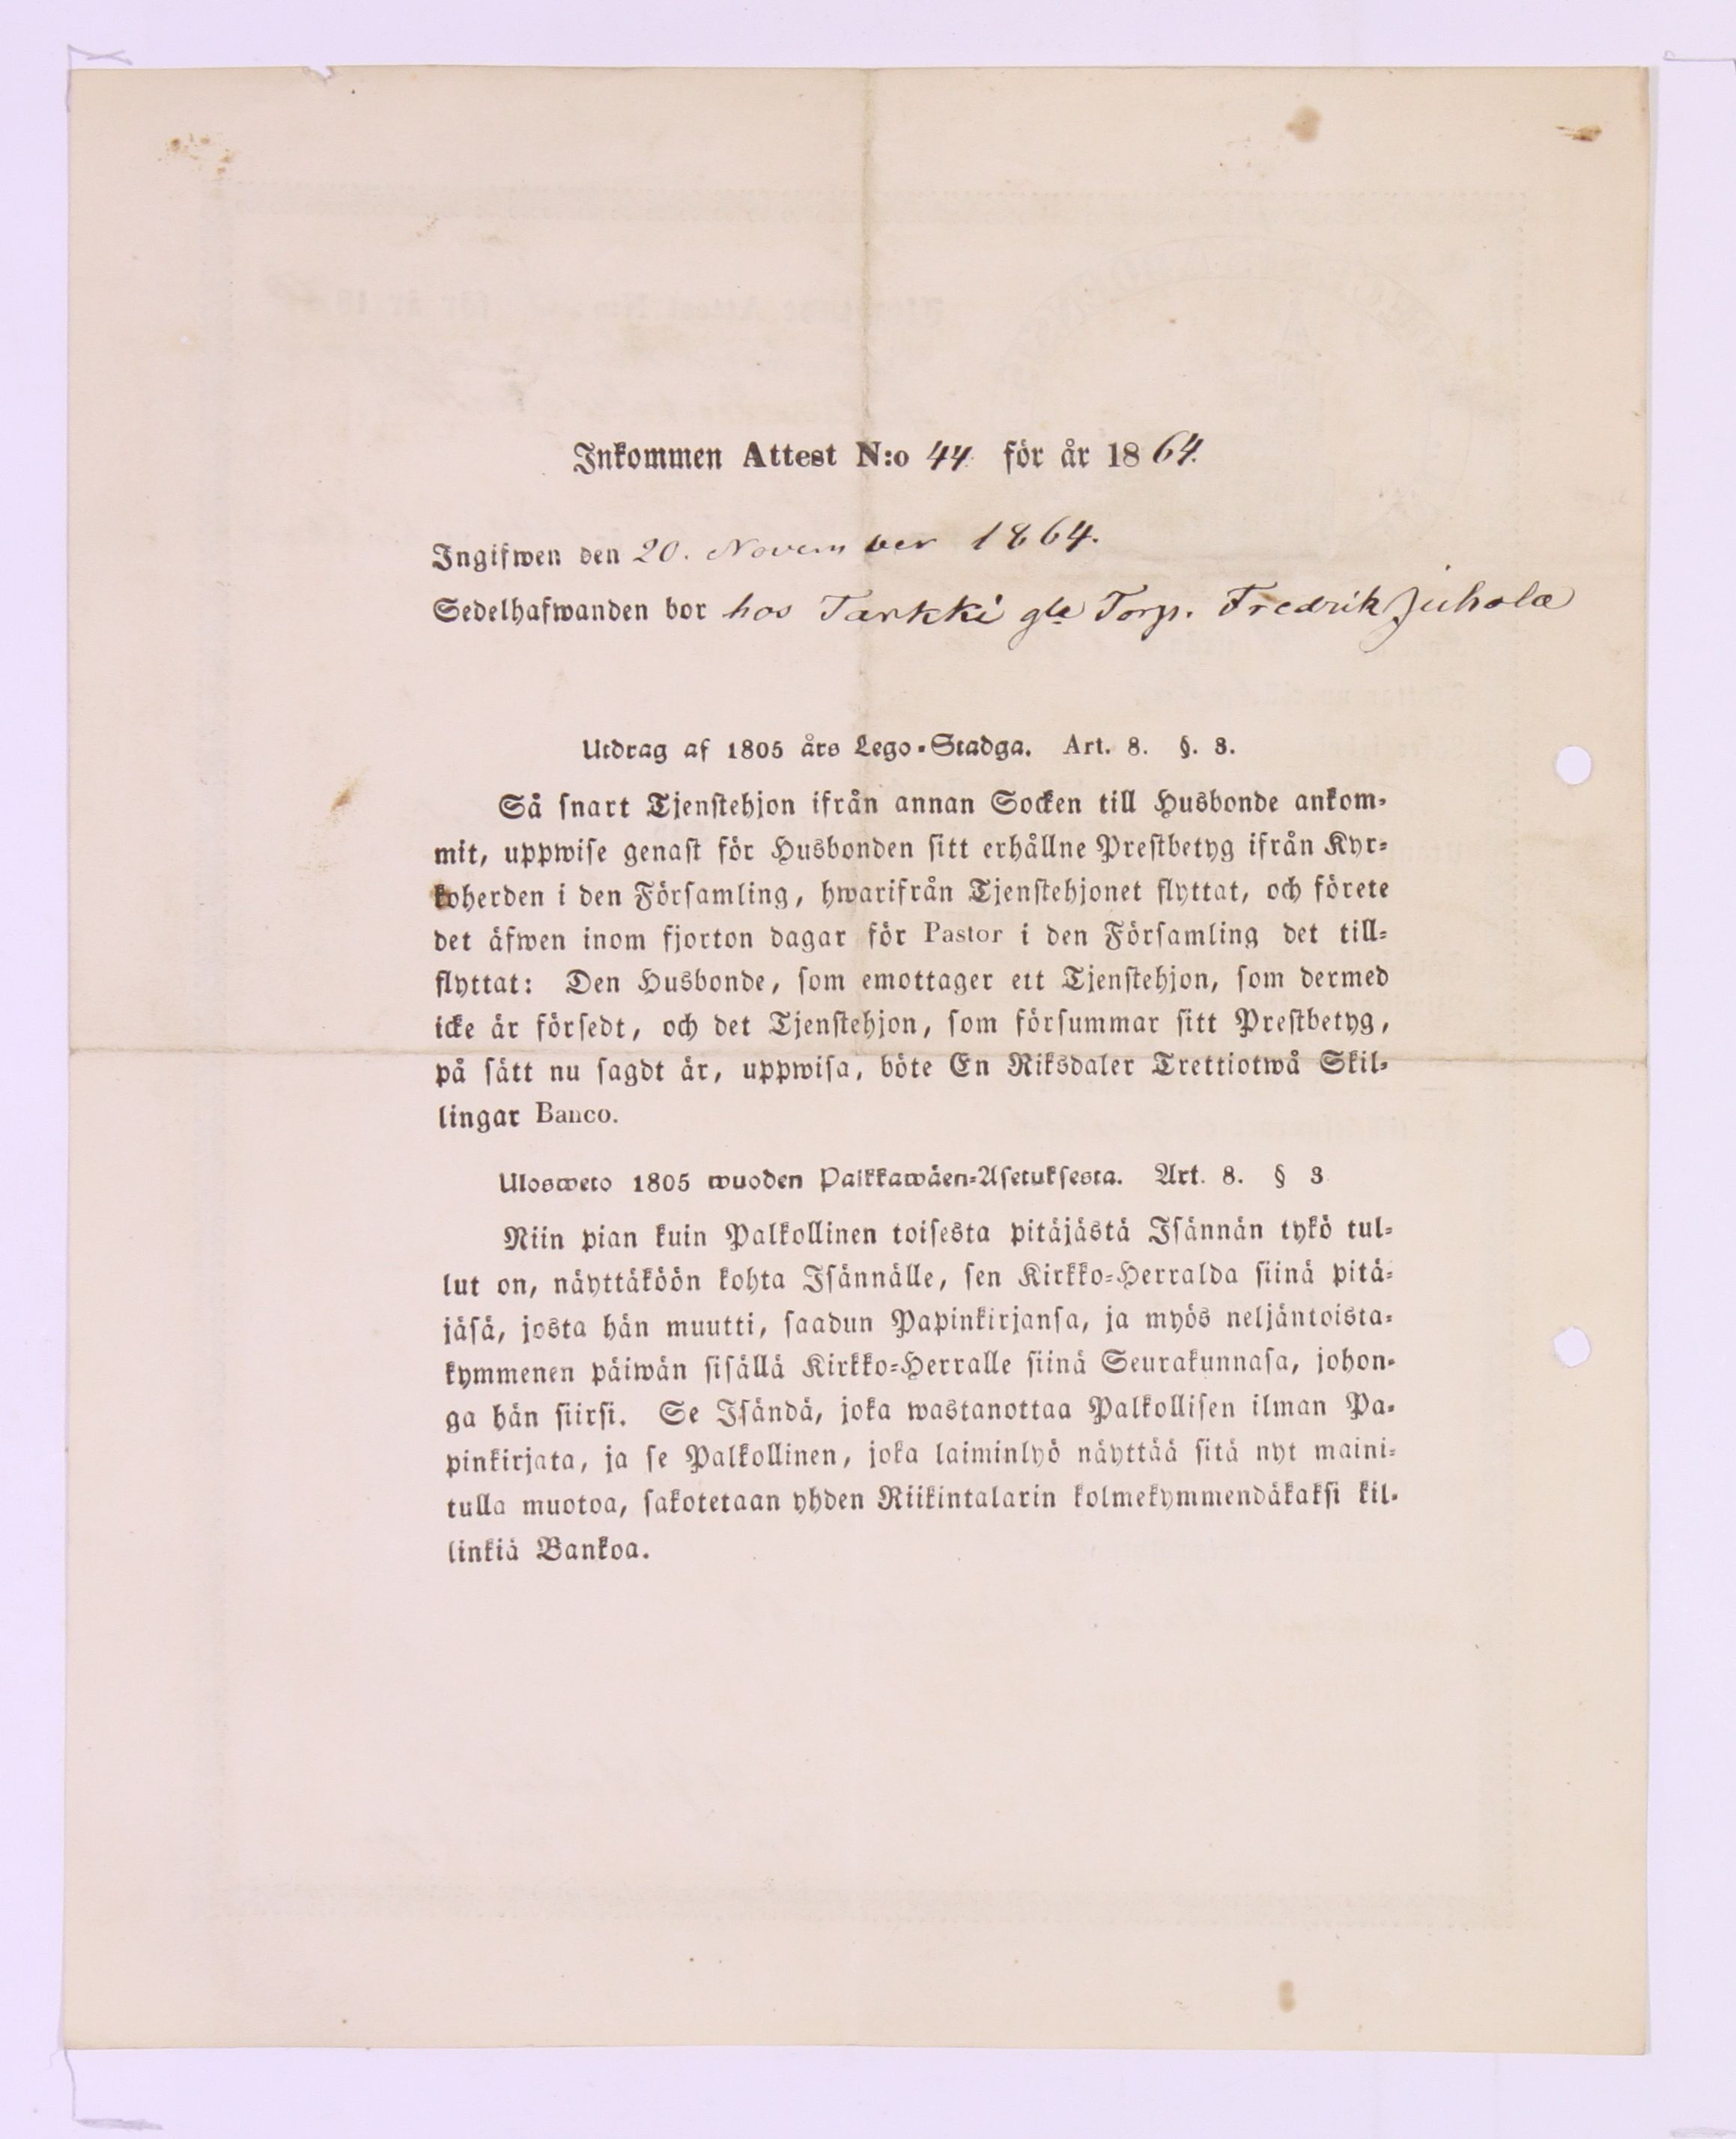 Inkommen Attest N:o 44 för år 1864.
Ingifwen den 20. November 1864.
Sedelhafwanden bor hos Tarkki gla Torp. Fredrik Juhola
Utdrag af 1805 års Lego-Stadga. Art. 8. §. 3.
Så snart Tjenstehjon ifrån annan Socken till Husbonde ankom-
mit, uppwise genast för Husbonden sitt erhållne Prestbetyg ifrån Kyr-
koherden i den Församling, hwarifrån Tjenstehjonet flyttat, och förete
det äfwen inom fjorton dagar för Pastor i den Församling det till-
flyttat: Den Husbonde, som emottager ett Tjenstehjon, som dermed
icke är försedt, och det Tjenstehjon, som försummar sitt Prestbetyg,
på sätt nu sagdt är, uppwisa, böte En Riksdaler Trettiotwå Skil-
lingar Banco.
Ulosweto 1805 wuoden Palkkawäen-Asetuksesta. Art. 8. § 3
Niin pian kuin Palkollinen toisesta pitäjästä Isännän tykö tul-
lut on, näyttäköön kohta Isännälle, sen Kirkko-Herralda siinä pitä-
jäsä, josta hän muutti, saadun Papinkirjansa, ja myös neljäntoista-
kymmenen päiwän sisällä Kirkko-Herralle siinä Seurakunnasa, johon-
ga hän siirsi. Se Isändä, joka wastanottaa Palkollisen ilman Pa-
pinkirjata, ja se Palkollinen, joka laiminlyö näyttää sitä nyt maini-
tulla muotoa, sakotetaan yhden Riikintalarin kolmekymmendäkaksi kil-
linkiä Bankoa.